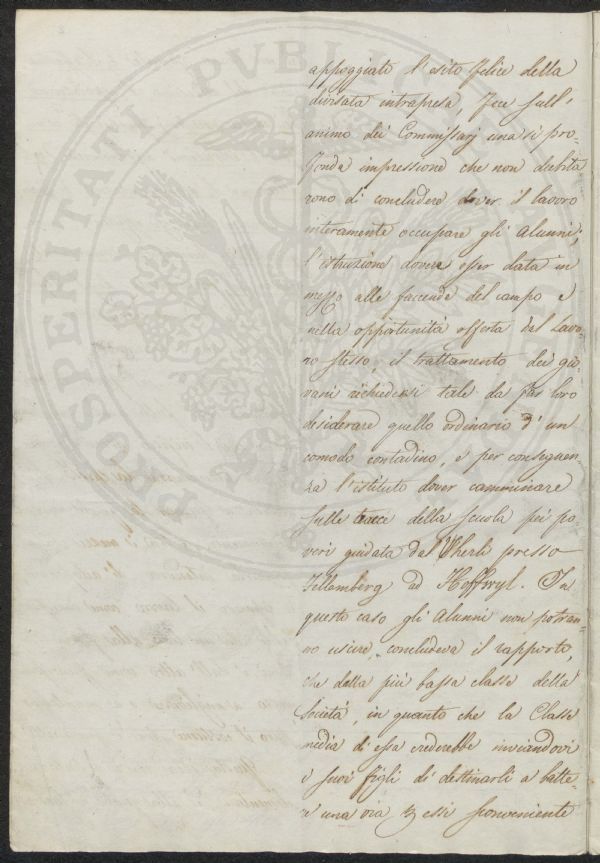 appoggiato l'esito felice della
divisata intrapresa, fece sull'
animo dei Commissarj una sì pro-
fonda impressione che non dubita
rono di concludere dover il lavoro
interamente occupare gli Alunni;
l'istruzione dovere esser data in
mezzo alle faccende del campo e
nella opportunità offerta dal Lavo-
ro stesso, il trattamento dei gio-
vani richiedersi tale da far loro
desiderare quello ordinario d'un
comodo contadino, e per conseguen-
za l'istituto dover camminare
sulle tracce della scuola pei po-
veri guidata dal Vherli presso
Fellemberg ad Hoffwyl. In
questo caso gli Alunni non potran-
no uscire, concludeva il rapporto,
che dalla più bassa classe della
Società, in quanto che la Classe
media di essa crederebbe inviandovi
i suoi figli di destinarli a batte-
re una via per essi sconveniente
PROSPERITATI PVBLIC